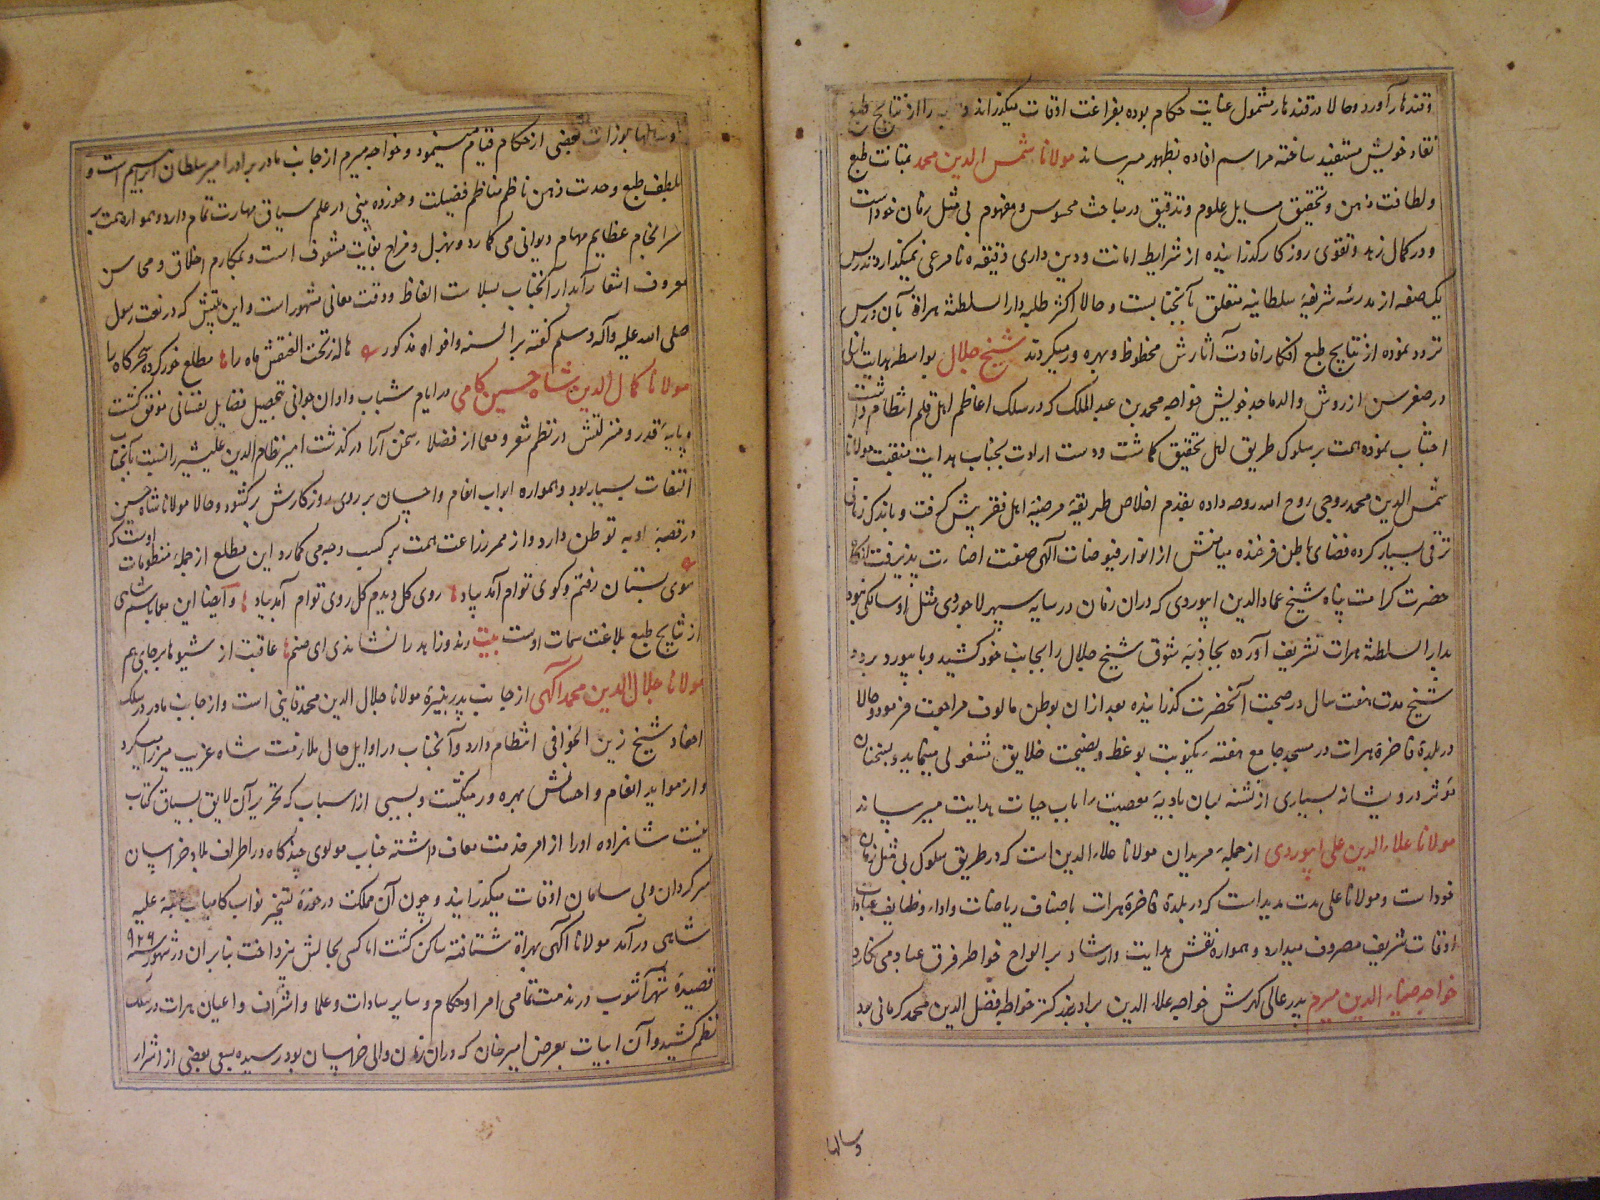 قندهار آورد و حالا در قندهار مشمول عنایت حکام بوده بفراغت اوقات میگذراند و را از نتایج طبع
نقاد خویش مستفید ساخته مراسم افاده بظهور میرساند مولانا شمس الدین محمد بمتانت طبع
و لطافت ذهن و تحقیق مسایل علوم و تدقیق در مباحث محسوس و مفهوم بی مثل زمان خود است
و در کمال زهد و تقوی روزکار کذرانیده از شرایط امانت و دین داری دقیقه نامرعی نمیکذارد تدریس
یک صفه از مدرسه شریفه سلطانیه متعلق بآنجنابست و حالا اکثر طلبه دار السلطنه هراة بآن درس
تردد نموده از نتایج طبع افکار افادت آثارش محظوظ و بهره ور میکردند شیخ جلال بواسطه هدایت ازلی
در صغر سن از روش والد ماجد خویش خواجه محمد بن عبد الملک که در سلک اعاظم اهل قلم انتظام داشت
اجتناب نموده همت بر سلوک طریق اهل تحقیق کماشت و دست ارادت بجناب هدایت منقبت مولانا
شمس الدین محمد روجی روح الله روحه داده بقدم اخلاص طریقه مرضیه اهل فقر پیش کرفت و باندک زمانی
ترقی بسیار کرده فضای باطن فرخنده میامنش از انوار فیوضات الهی صفت اضاءت پذیرفت آنکاه
حضرت کرامت پناه شیخ عماد الدین ابیوردی که در آن زمان در سایه سپهر لاجوردی مثل او سالکی نبود
بدار السلطنه هرات تشریف آورده بجاذبه شوق شیخ جلال را بجانب خود کشید و بابیورد برد و
شیخ مدت هفت سال در صحبت آنحضرت کذرانیده بعد از آن بوطن مالوف مراجعت فرمود و حالا
در بلده فاخره هرات در مسجد جامع هفته یکنوبت بوعظ و نصیحت خلایق مشغولی مینماید و بسخنان
مؤثر درویشانه بسیاری از تشنه لبان بادیه معصیت را بآب حیات هدایت میرساند
مولانا علاء الدین علی ابیوردی از جمله مریدان مولانا علاء الدین است که در طریق سلوک بی مثل زمان
خود است و مولانا علی مدت مدید است که در بلده فاخره هرات باصناف ریاضات و اداء وظایف عبادات
اوقات شریف مصروف میدارد و همواره نقش هدایت و ارشاد بر الواح خواطر فرق عباد می نکارد
خواجه ضیاء الدین میرم پدر عالی کهرش خواجه علاء الدین برادر بزرکتر خواجه فضل الدین محمد کرمانی بود
و سالها
و سالها بوزارت بعضی از حکام قیام مینمود و خواجه میرم از جانب مادر برادر امیر سلطان ابراهیم است و
بلطف طبع و حدت ذهن ناظم مناظم فضیلت و خورده بینی در علم سیاق مهارت تمام دارد و همواره همت بر
سرانجام عظایم مهام دیوانی می کمارد و بهزل و مزاح بغایت مشغوف است و بمکارم اخلاق و محاسن
معروف اشعار آبدار آنجناب بسلاست الفاظ و دقت معانی مشهور است و این بیتش که در نعت رسول
صلی الله علیه و آله وسلم کفته بر السنه و افواه مذکور هاله ز تحت الحنقش ماه را مطلع خور کرده سحرکاه را
مولانا کمال الدین شاه حسین کامی در ایام شباب و اوان جوانی بتحصیل فضایل نفسانی موفق کشت
و پایه قدر و منزلتش در نظم شعر و معما از فضلاء سخن آرا درکذشت امیر نظام الدین علیشیر را نسبت بآنجناب
التفات بسیار بود و همواره ابواب انعام و احسان بر روی روزکارش برکشود و حالا مولانا شاه حسین
در قصبه اوبه توطن دارد و از ممر زراعت همت بر کسب وجه می کمارد و این مطلع از جمله منظومات اوست که
سوی بستان رفتم و کوی توام آمد بیاد روی کل دیدم کل روی توام آمد بیاد و ایضا این معما باسم شاهی
از نتایج طبع بلاغت سمات اوست بیت رند و زاهد را نشاندی ای صنم عاقبت از شیوها بر جای هم
مولانا جلال الدین محمد آکهی از جانب پدر نبیره مولانا جلال الدین محمد قاینی است و از جانب مادر در سلک
احفاد شیخ زین الخوافی انتظام دارد و آنجناب در اوایل حال ملازمت شاه غریب میرزا میکرد
و از مواید انعام و احسانش بهره ور میکشت و بسببی از اسباب که تحریر آن لایق بسیاق کتاب
نیست شاهزاده او را از امر خدمت معاف داشته جناب مولوی چندکاه در اطراف بلاد خراسان
سرکردان و بی سامان اوقات میکذرانید و چون آن مملکت در حوزه تسخیر نواب کامیاب عتبه علیه
شاهی درآمد مولانا آکهی بهراة شتافته ساکن کشت اما کسی بحالش نپرداخت بنابر آن در شهور سنه ۹۲۶
قصیده شهرآشوب در مذمت تمامی امرا و حکام و سایر سادات و علما و اشراف و اعیان هرات در سلک
نظم کشید و آن ابیات بعرض امیر خان که در آن زمان والی خراسان بود رسیده بسعی بعضی از اشرار